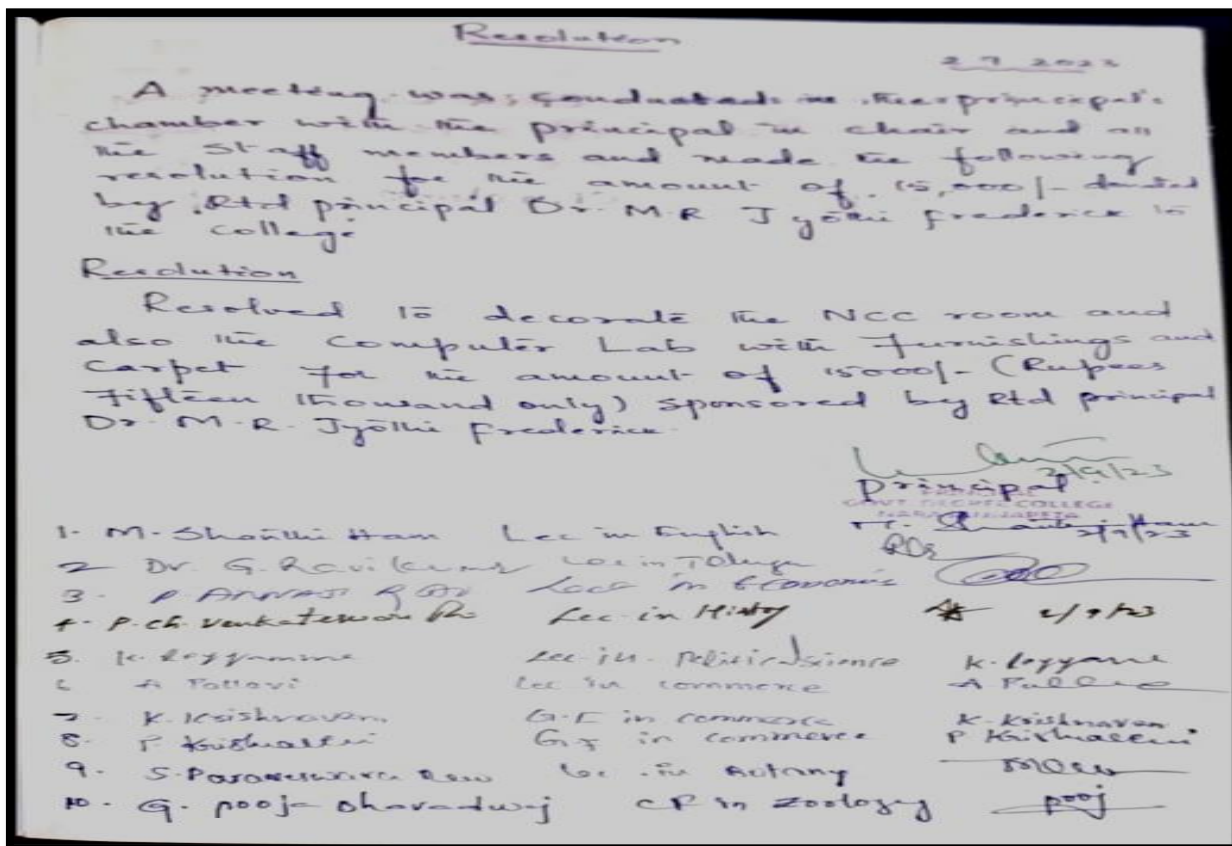 Resolution
2 9 2023
A meeting was conducted in the principal's
chamber with the principal in chair and all
the staff members and made the following
resolution for the amount of 15,000/- donated
by Rtd principal Dr. M.R Jyōthi Frederick to
the college
Resolution
Resolved to decorate the NCC room and
also the Computer Lab with Furnishings and
Carpet for the amount of 15000/- (Rupees
Fifteen thousand only) sponsored by Rtd principal
Dr. M.R. Jyōthi Frederick.
2/9/23
Principal
PRINCIPAL
GOVT DEGREE COLLEGE
1- M. Shanthi Lec in English 2/9/23
2 Dr. G. Ravikumar Lec in Telugu
3. Lect in Economic
4- P. Ch. Venkateswara Rao Lec in History 2/9/23
5. K. Lec in Political science K.
6 A Pallavi Lec in commerce A
7- K. Krishnaveni G.F in commerce K. Krishnaveni
8. P G.F in commerce P
9. S. Parameswara Rao Lec in Botany
10. G. pooja Dharadwaj CF in zoology pooj